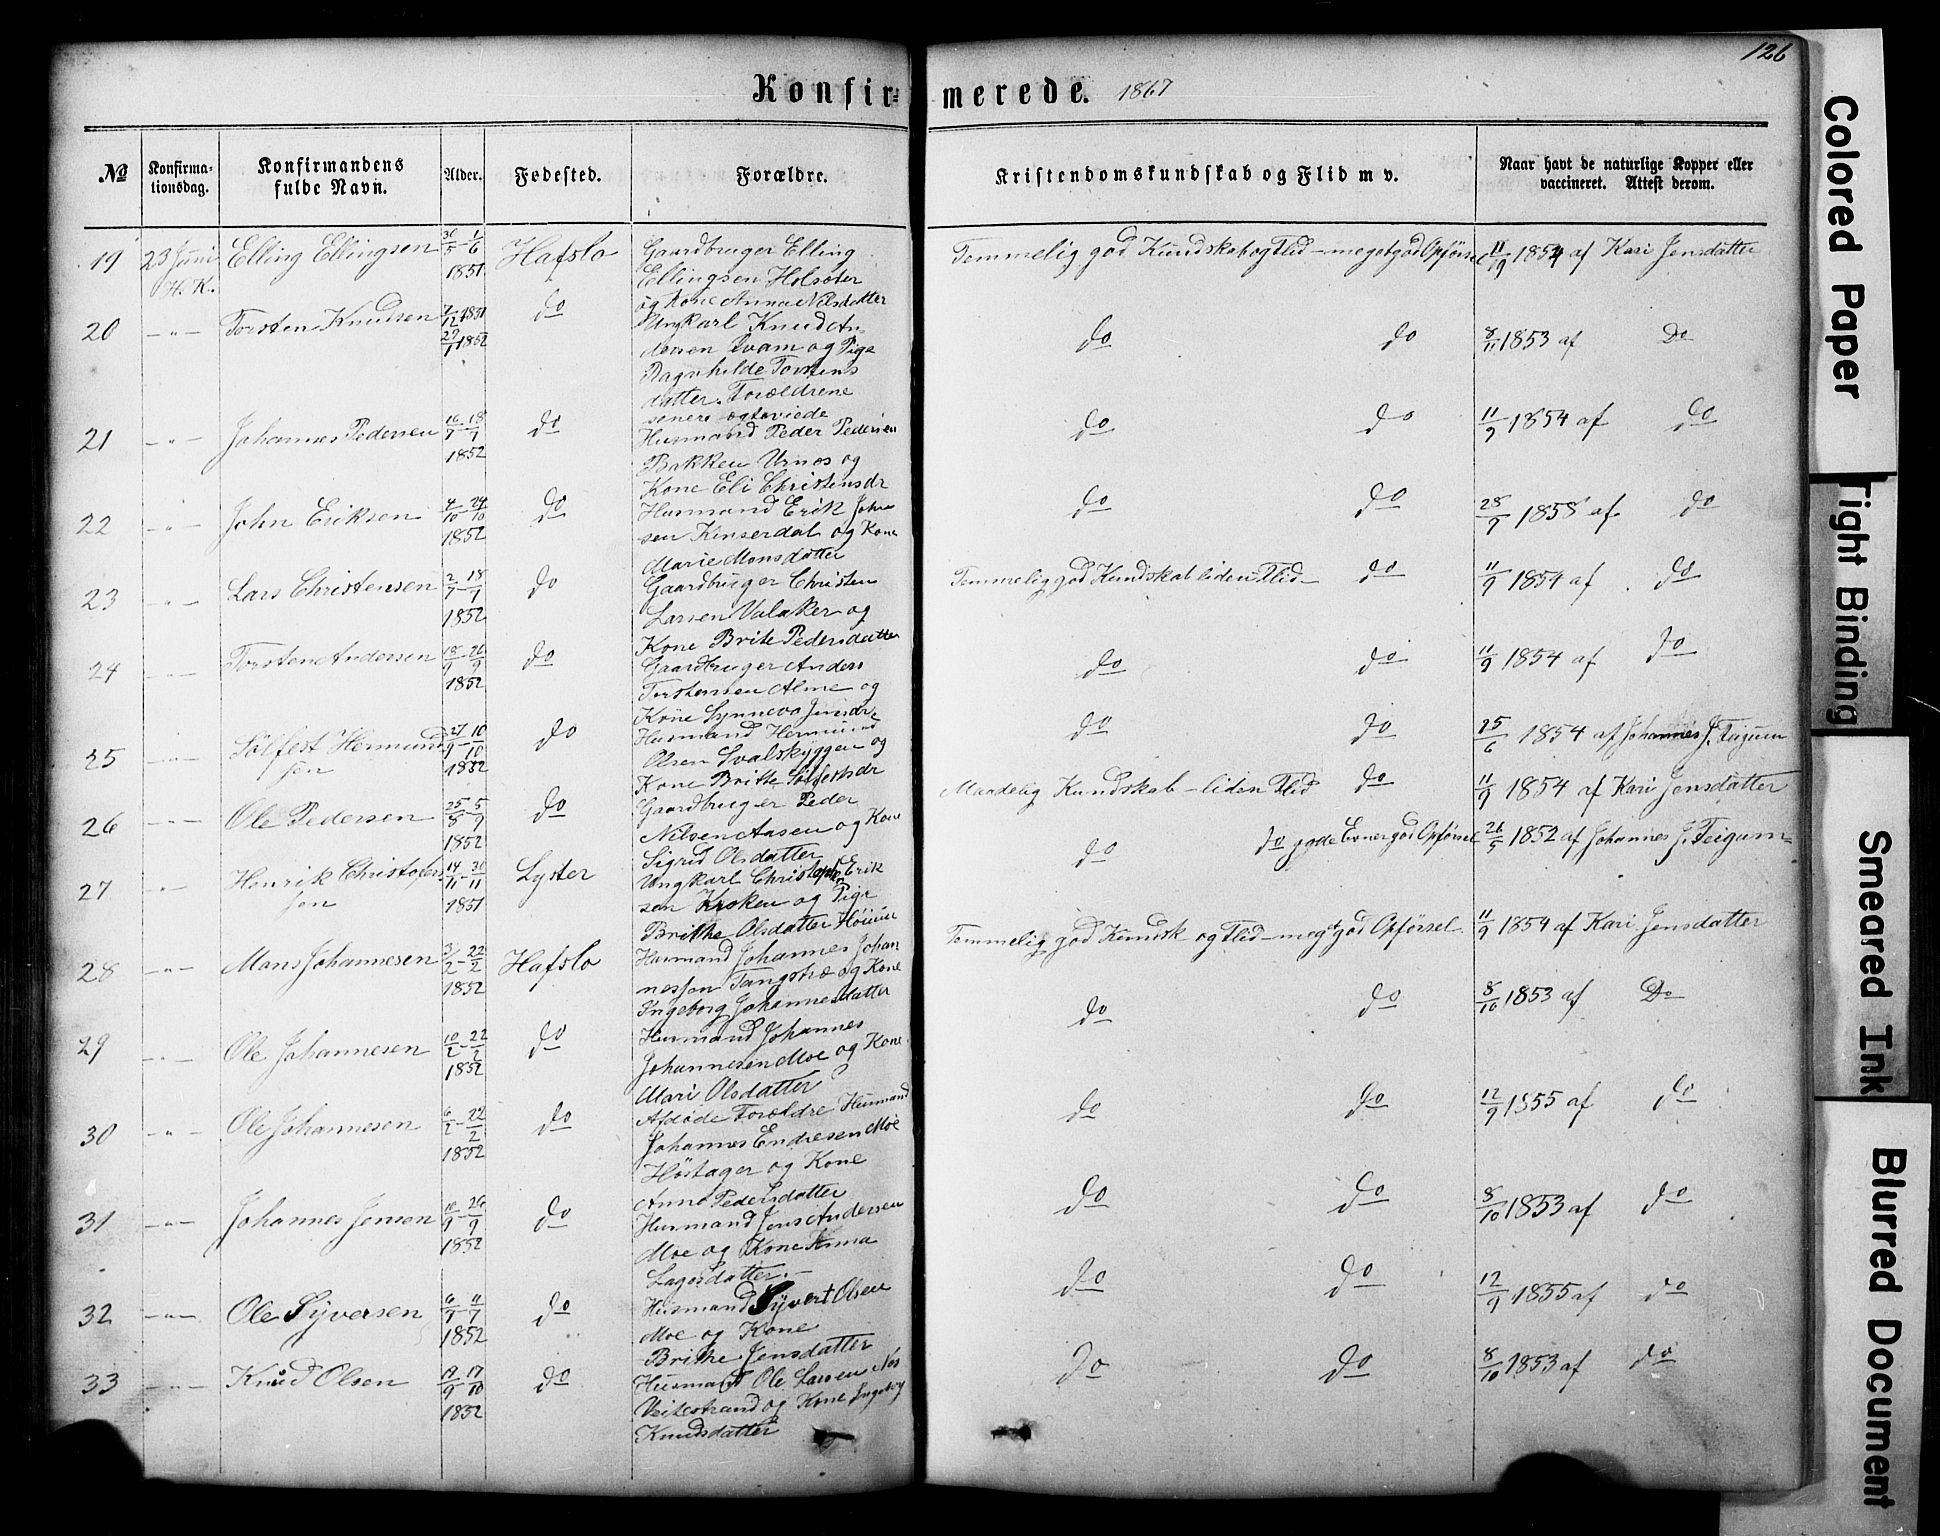 126
Konfir-
merede. 1867
No
Konfirma-
tionsdag.
Konfirmandens
fulde Navn.
Alder.
Fødested.
Forældre.
Kristendomskundskab og Flid m v.
Naar havt de naturlige Kopper eller
vaccineret. Attest derom.
19 23 Juni Elling Ellingsen 30/5 - 1/6 Hafslo Gaardbruger Elling Temmelig god Kundskab og Flid - meget god Opførsel 11/9 1854 af Kari Jensdatter
H. K. 1851 Ellingsen Holsæter
og Kone Anna Nilsdatter
20 — " — Torsten Knudsen 7/12 1851 do Ungkarl Knud An-
27/1 1852 dersen Kvam og Pige do do 8/11 1853 af Do
Ragnhilde Torstens
datter. Forældrene
senere ægteviede
21 — " — Johannes Pedersen do Husmand Peder Pedersen do do 11/9 1854 af do
1852 Bakken Urnes og
Kone Eli Christensdr
22 — " — John Eriksen 4/10 - 24/10 do Husmand Erik Johan do do 28/9 1858 af do
1852 sen Kinserdal og Kone
Marie Monsdatter
23 — " — Lars Christensen 2/7 - 18/7 do Gaardbruger Christen Temmelig god Kundskab liden Flid - do 11/9 1854 af do
1852 Larsen Valaker og
Kone Brite Pedersdatter
24 — " — Torsten Andersen 18/9 - 26/9 do Gaardbruger Anders do do 11/9 1854 af do
1852 Torstensen Alme og
Kone Synneva Jensdr
25 — " — Sølfest Hermund 27/9 - 10/10 do Husmand Hermund do do 25/6 1854 af Johannes J. Feigum
sen 1852 Olsen Svalskyggen og
Kone Britte Sølfestsdr
26 — " — Ole Pedersen 25/8 - 5/9 do Gaardbruger Peder Maadelig Kundskab - liden Flid do 11/9 1854 af Kari Jensdatter
1852 Nilsen Aasen og Kone
Sigrid Olsdatter
27 — " — Henrik Christofer 14/11 - 30/11 Lyster Ungkarl Christopher Erik do do gode Evner god Opførsel 26/5 1852 af Johannes J. Feigum
sen 1851 sen Kroken og Pige
Brithe Olsdatter
28 — " — Mons Johannesen 3/2 - 22/2 Hafslo Husmand Johannes Johan Temmelig god Kundsk og Flid - meget god Opførsel 11/9 1854 af Kari Jensdatter
1852 nessen Tangstræ og Kone
Ingeborg Johannesdatter
29 — " — Ole Johannesen 10/2 - 22/2 do Husmand Johannes do do 8/10 1853 af Do
1852 Johannesen Moe og Kone
Mari Olsdatter
30 — " — Ole Johannesen 6/2 - 22/2 do Afdøde Forældre Husmand do do 12/9 1855 af do
1852 Johannes Endresen Moe
Høstager og Kone
Anne Pedersdatter
31 — " — Johannes Jensen 10/9 - 26/9 do Husmand Jens Andersen do do 8/10 1853 af do
1852 Moe og Kone Anna
Lagesdatter. -
32 — " — Ole Syversen 6/7 - 11/7 do Husmand Syvert Olsen do do 12/9 1855 af do
1852 Moe og Kone
Brithe Jensdatter
33 — " — Knud Olsen 19/9 - 17/10 do Husmand Ole Larsen Nes do do 8/10 1853 af do
1852 Veitestrand og Kone Ingebor
Knudsdatter
Colored Paper
Tight Binding
Smeared Ink
Blurred Document